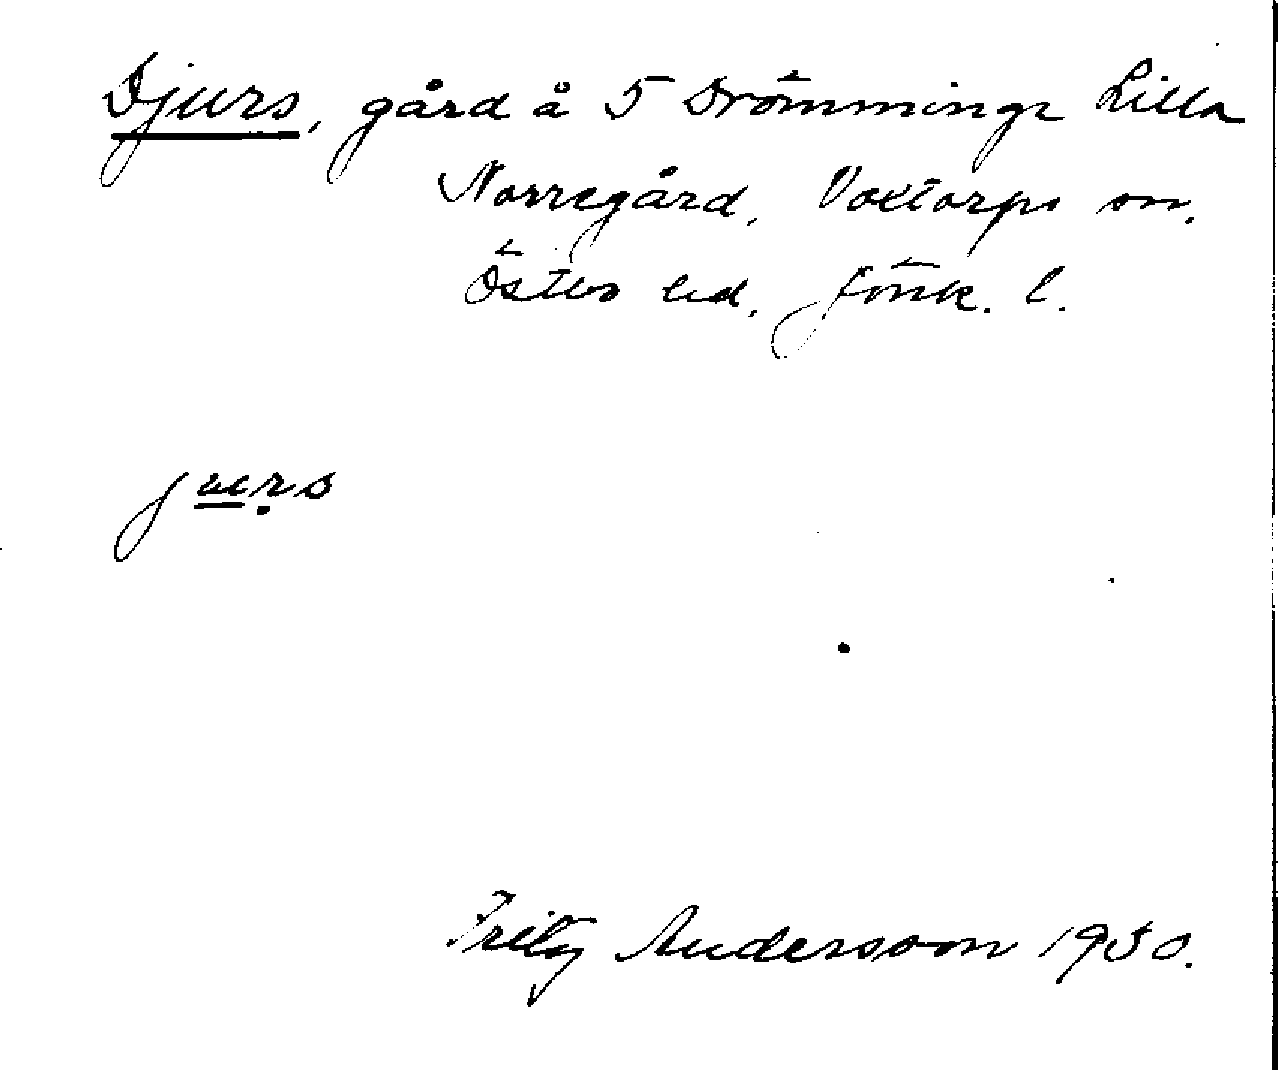 Djurs, gård å 5 Drömminge Lilla
Norregård, Voxtorps sn.
Östbo hd. Jönk. l.
jurs
Fritz Andersson 1930.